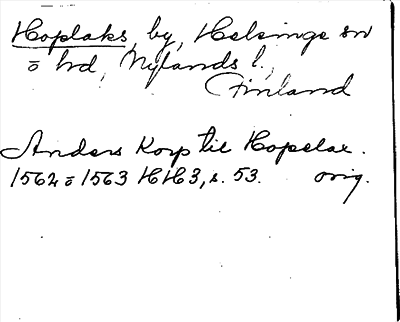 Hoplaks, by, Helsinge sn
o hd, Nylands l.,
Finland
Anders Korp till Hopelax.
1562 o 1563 HH3, s. 53. orig.